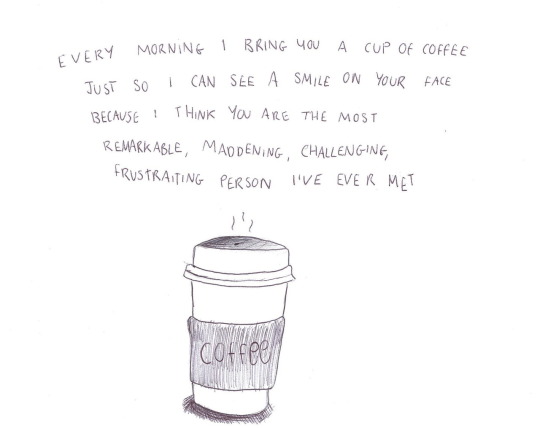 EVERY MORNING I BRING YOU A CUP OF COFFEE
JUST SO I CAN SEE A SMILE ON YOUR FACE
BECAUSE I THINK YOU ARE THE MOST
REMARKABLE, MADDENING, CHALLENGING,
FRUSTRAITING PERSON I'VE EVER MET
coffee